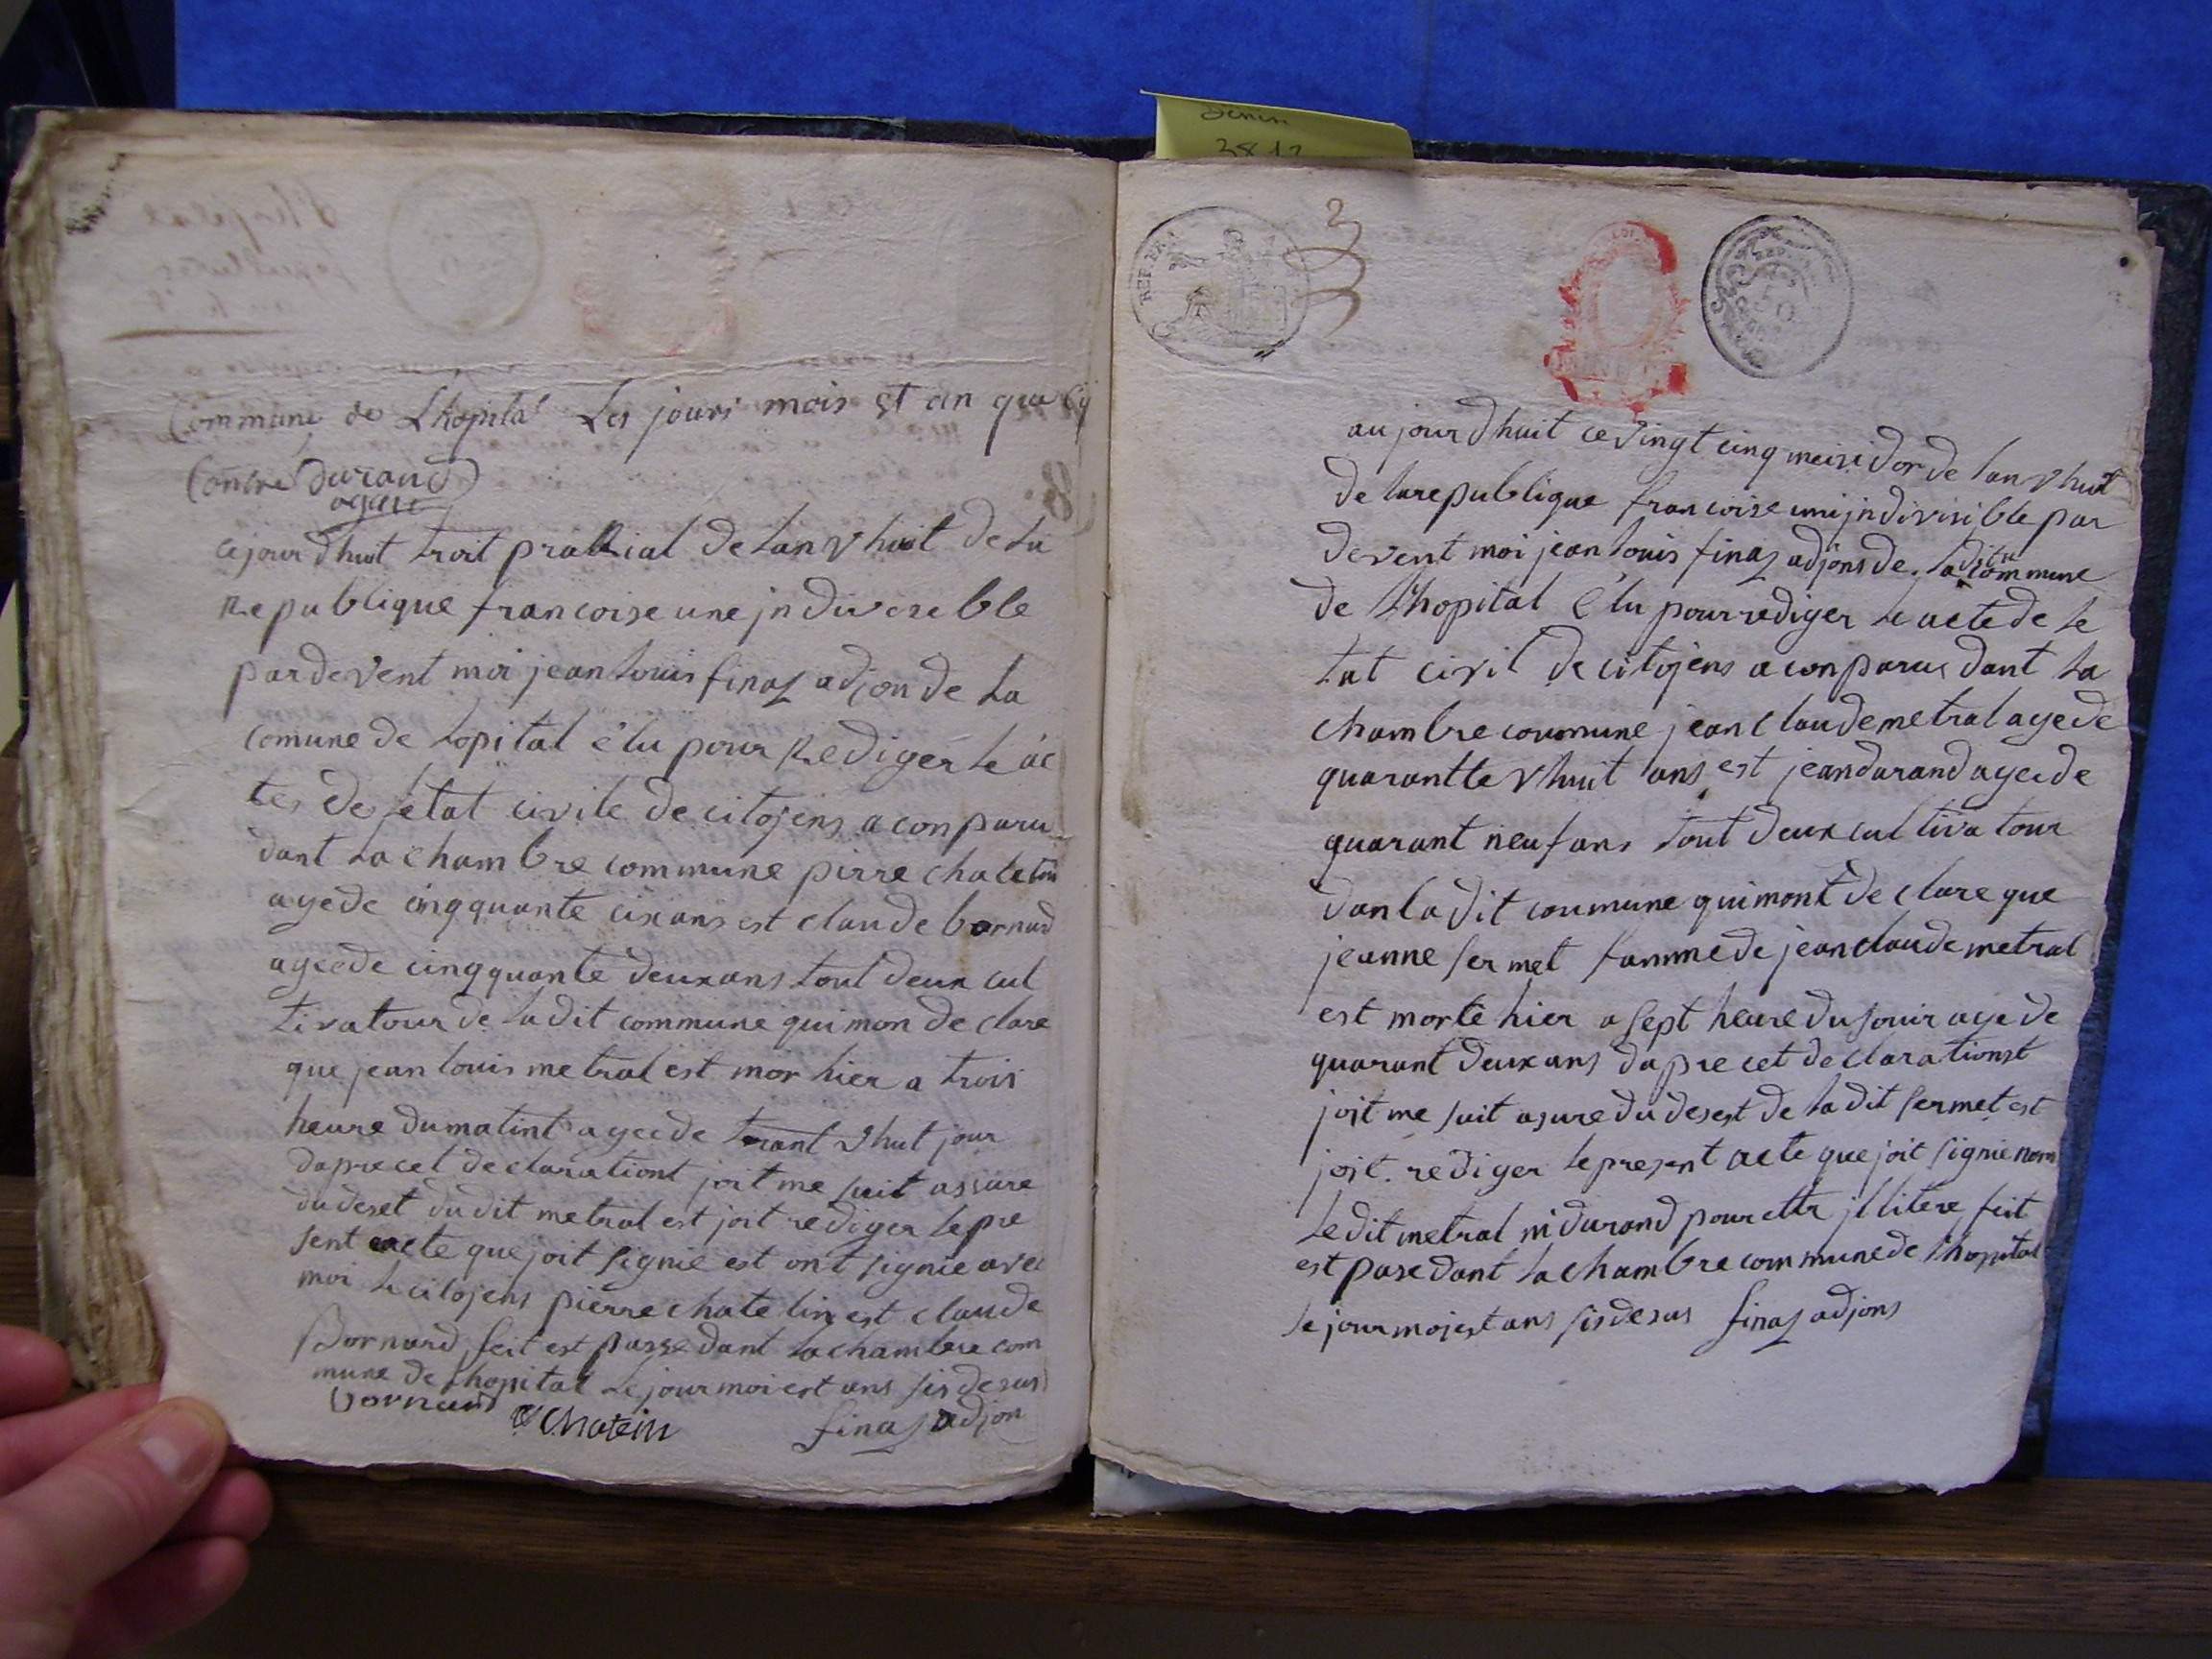 Commune de Lhopital Les jours mois et an que cy
Contre Durand
agent
cejourdhuit troit prallial de lan vhuit de la
Republique francoise une jndivoseble
pardevent moi jean louis finaz adjon de la
comune de lopital élu pour Rediger le ac
tes de letat civile de citojens a conparu
dant la chambre commune pirre chatelin
agede cinqquante cixans est claude bornard
ageede cinqquante deuxans tout deux cul
tivatour de ladit commune quimon de clare
que jean louis metral est mor hier a trois
heure dumatint ageede trant vhut jour
daprecet declarationt joit me suit assure
dudeset dudit metral est joit rediger lepre
sent acte que joit signie est ont signie avec
moi le citojens pierre chatelin est claude
Bornard feit est passe dant la chambre com
mune de lhopital le jour moi est ans sis desus
bornard
chatein
finaz adjon
REP. FRA
3
aujourdhuit cevingt cinq meisidor de lan vhuit
de larepublique francoise uni jndivisible par
devent moi jean louis finaz adjons de. ladite commune
de lhopital élu pourrediger le actede le
tat civil de citojens a conparue dant la
chambre coumune jean claude metral agede
quarantte vhuit ans est jeandurand ageede
quarant neufans tout deux cultivatour
danladit coumune quimont de clare que
jeanne fermet famme de jeanclaude metral
est morte hier a sept heure du souir agede
quarant deuxans dapre cet declarationst
joit me suit asure du desest de ladit fermet est
joit. rediger lepresent acte que joit signie nom
ledit metral ni durand pour ettr jllitere feit
est pase dant la chambre commune de lhopital
le jour moi est ans sis desus finaz adjons